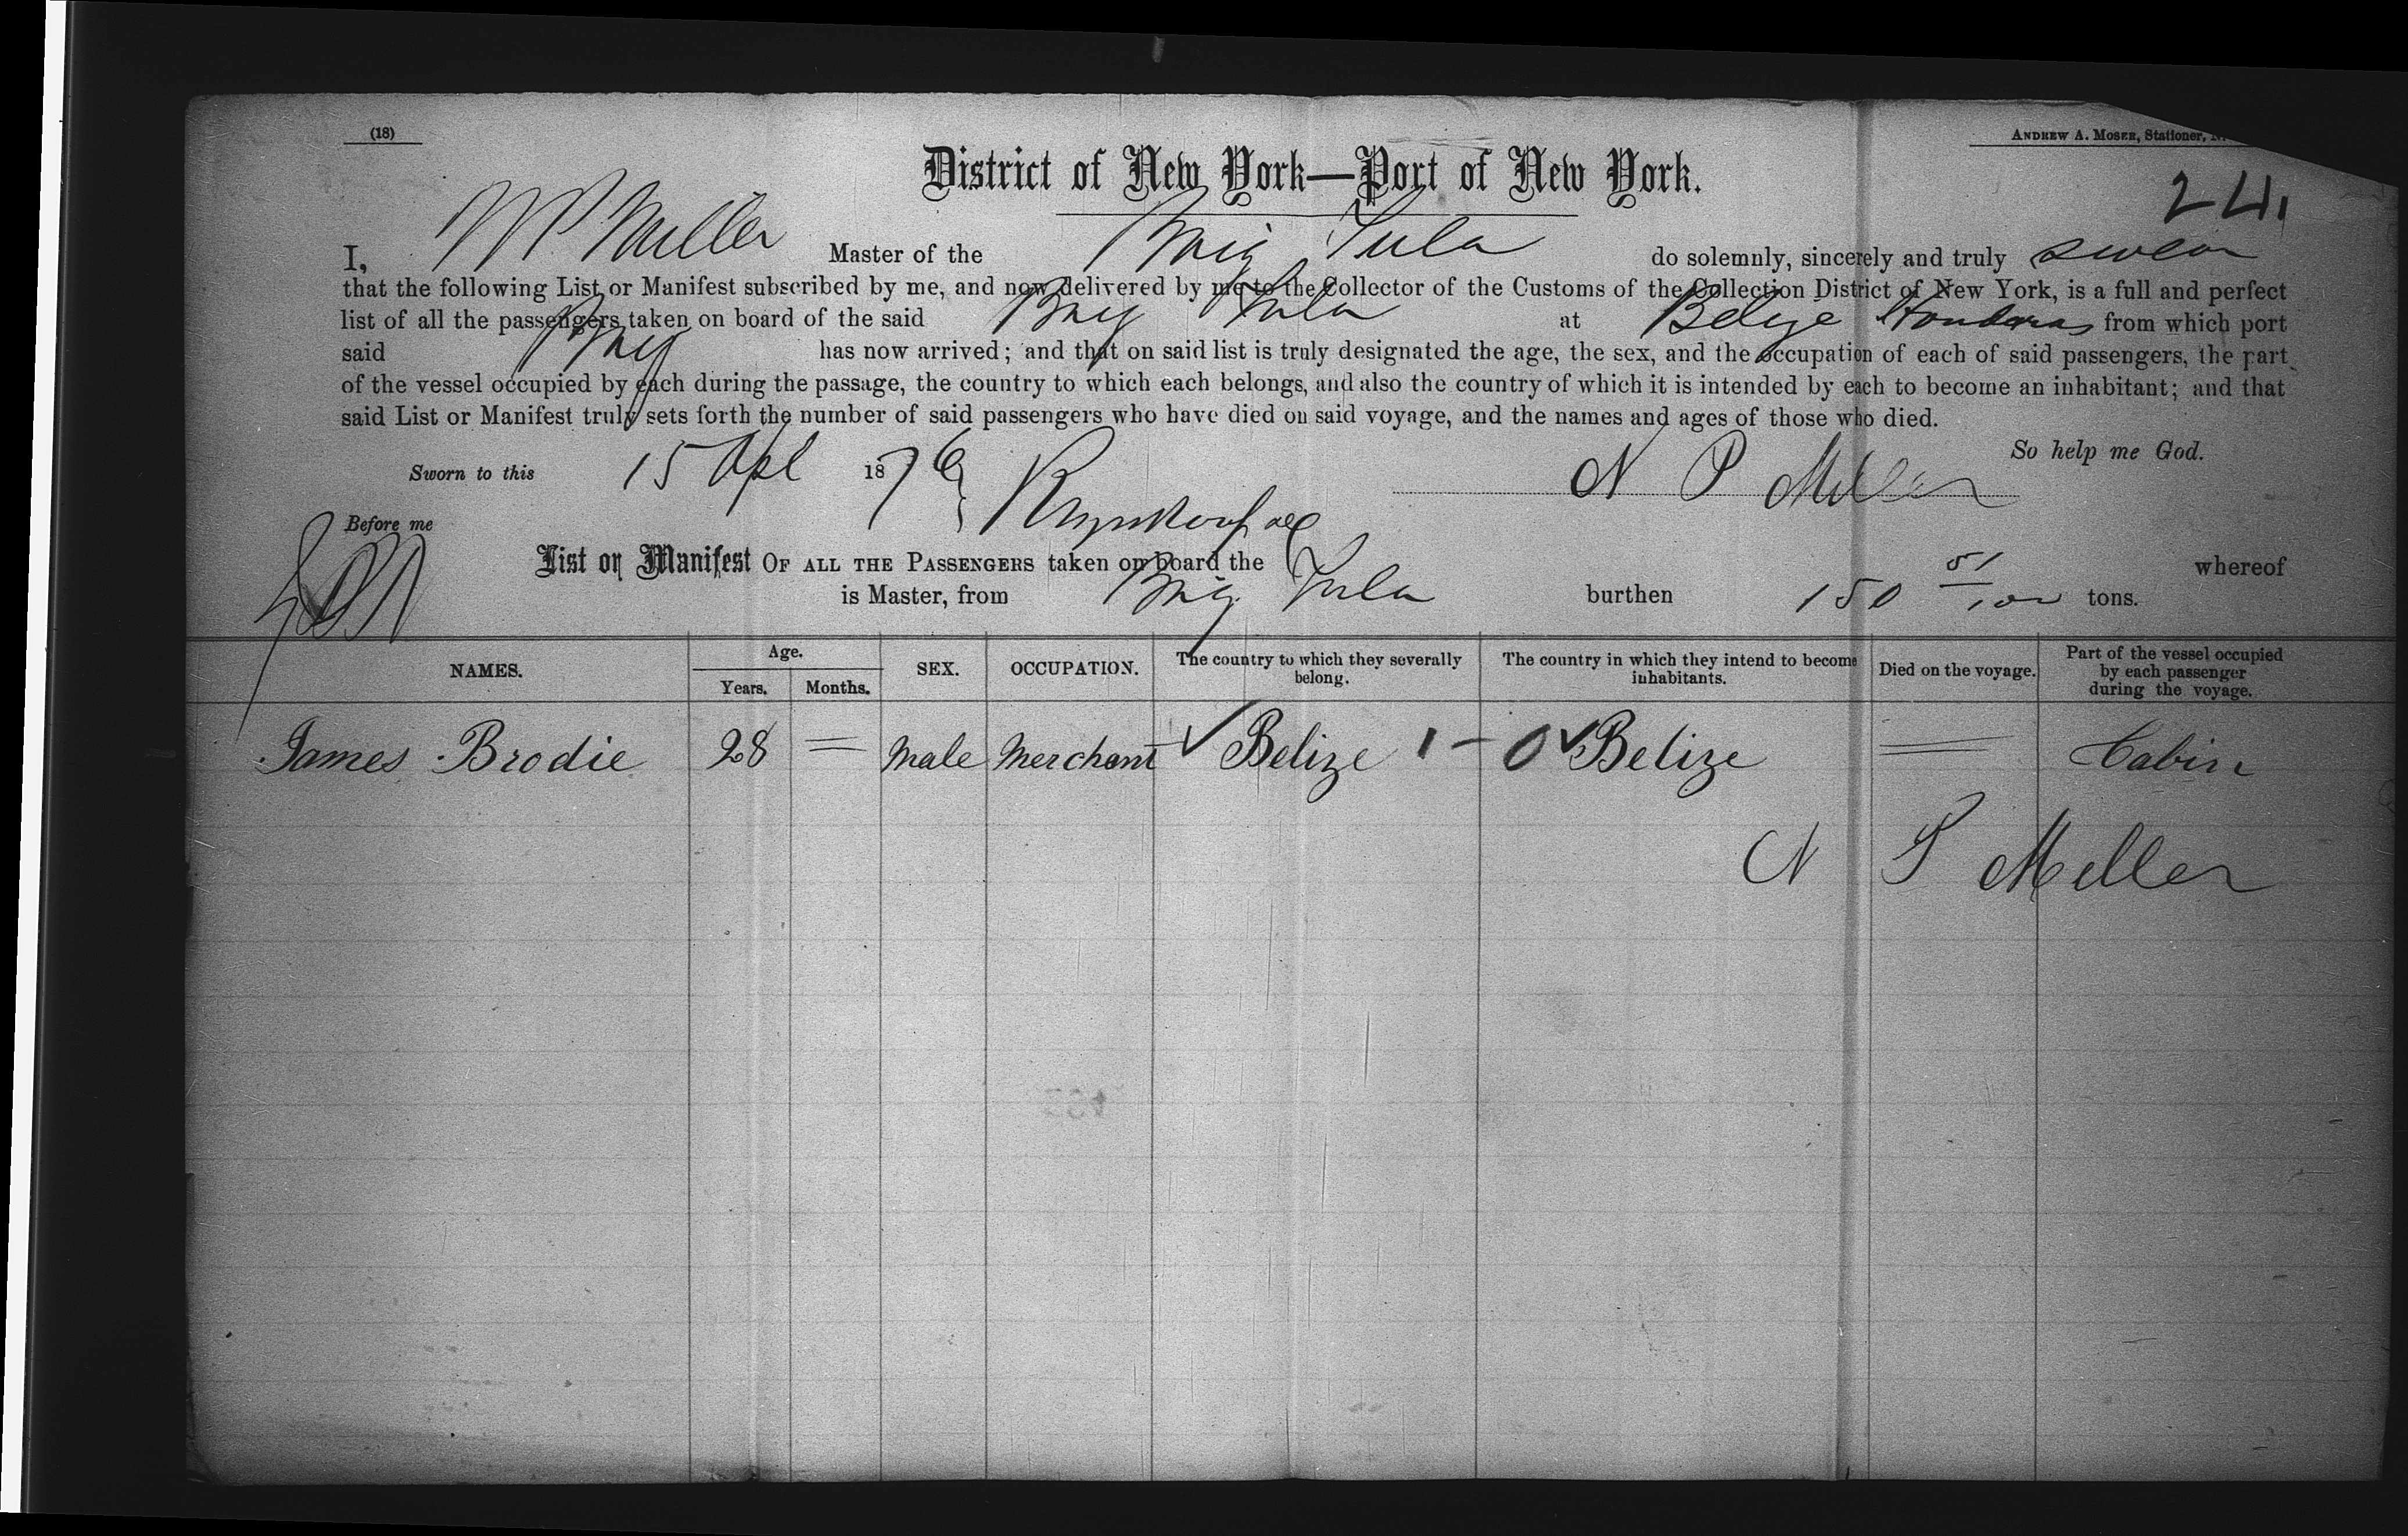 (18)
ANDREW A. MOSER, Stationer,
District of New York—Port of New York.
24
I, N P Miller Master of the Brig Tula do solemnly, sincerely and truly swear
that the following List or Manifest subscribed by me, and now delivered by me to the Collector of the Customs of the Collection District of New York, is a full and perfect
list of all the passengers taken on board of the said Brig Tula at Belize Honduras from which port
said Brig has now arrived; and that on said list is truly designated the age, the sex, and the occupation of each of said passengers, the part
of the vessel occupied by each during the passage, the country to which each belongs, and also the country of which it is intended by each to become an inhabitant; and that
said List or Manifest truly sets forth the number of said passengers who have died on said voyage, and the names and ages of those who died.
So help me God.
Sworn to this 15 Apl 1876 N P Miller
Before me
List or Manifest OF ALL THE PASSENGERS taken on board the whereof
is Master, from Brig Tula burthen 150 51/100 tons.
NAMES. Age. Years. Months. SEX. OCCUPATION. The country to which they severally belong. The country in which they intend to become inhabitants. Died on the voyage. Part of the vessel occupied by each passenger during the voyage.
James Brodie 28 = Male Merchant ✓ Belize 1 - 0 ✓ Belize = Cabin
N P Miller